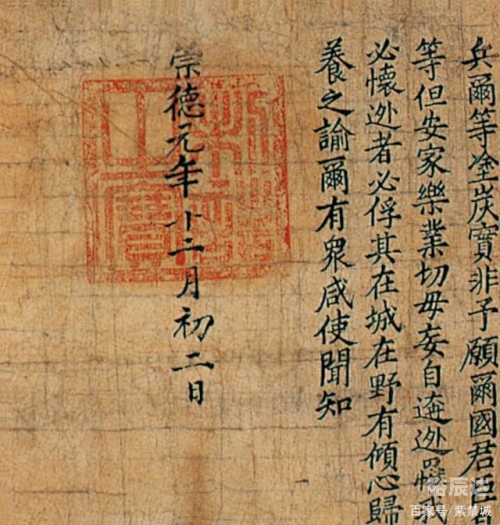 兵爾等塗炭實非予願爾國君臣
等但安家樂業切毋妄自迯
必懷迯者必俘其在城在野有傾心歸
養之諭爾有衆咸使聞知
崇德元年十二月初二日
百家号/紫禁城